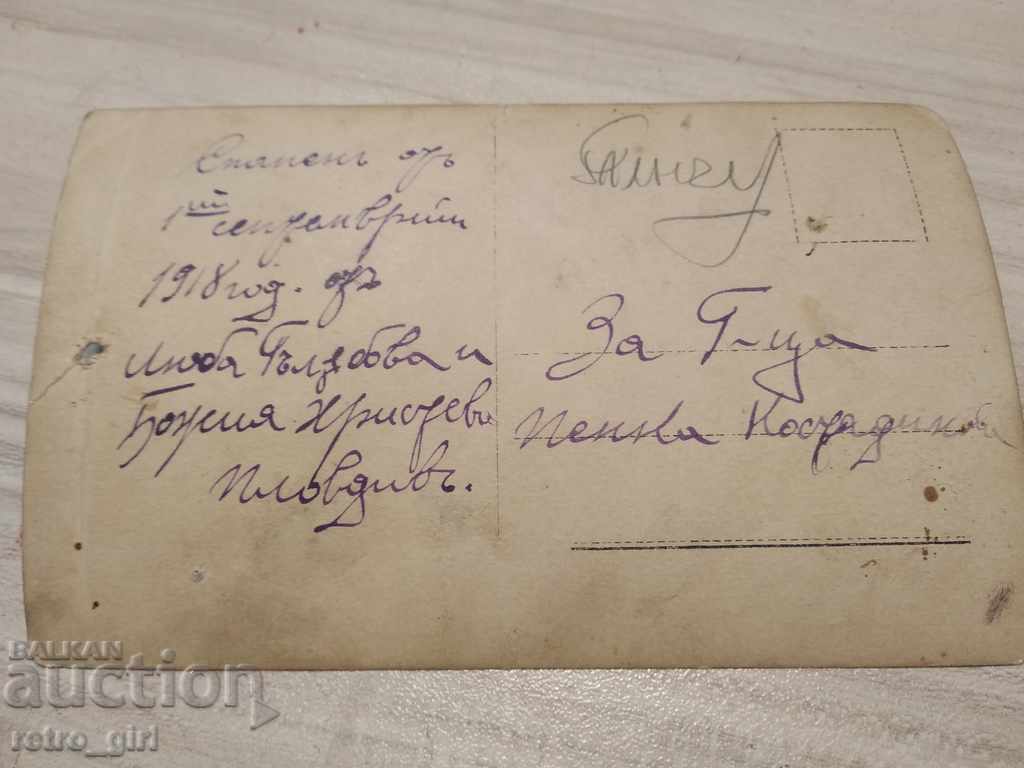 Спомень отъ
1ий септемврий
1918 год. отъ
Люба Гълѫбова и
Божия Христева
Пловдивъ.
За Г-ца
Пенка Костадинова
BALKAN
auction
retro_girl